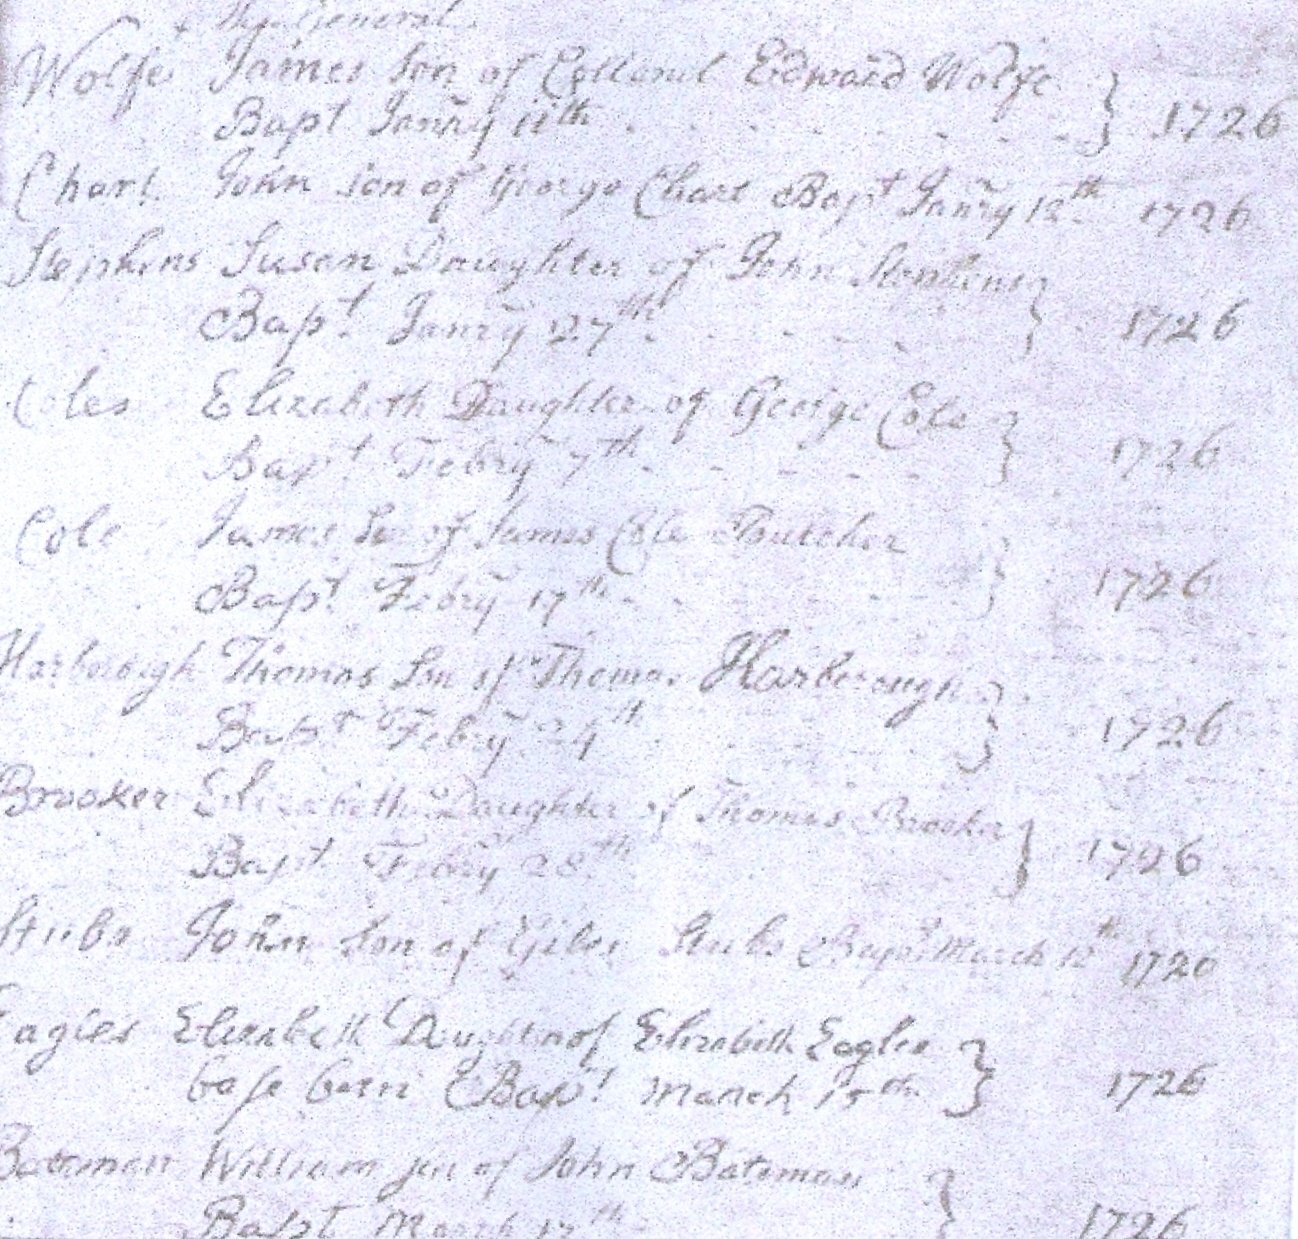 The General
Wolfe James son of Collonel Edward Wolfe
Bapt Janry 11th 1726
Chart John son of George Chart Bapt Janry 12th 1726
Stephens Susan Daughter of John Stephens
Bapt Janry 27th 1726
Coles Elizabeth Daughter of George Cole
Bapt Febry 7th 1726
Cole James Son of James Cole Butcher
Bapt Febry 17th 1726
Harborough Thomas Son of Thomas Harborough
Bapt Febry 24th 1726
Brooker Elizabeth Daughter of Thomas Brooker
Bapt Febry 28th 1726
Stubs John Son of Giles Stubs Bapt March 12th 1726
Eagles Elizabeth Daughter of Elizabeth Eagles
base born Bapt March 15th 1726
Bateman William son of John Bateman
Bapt March 17th 1726